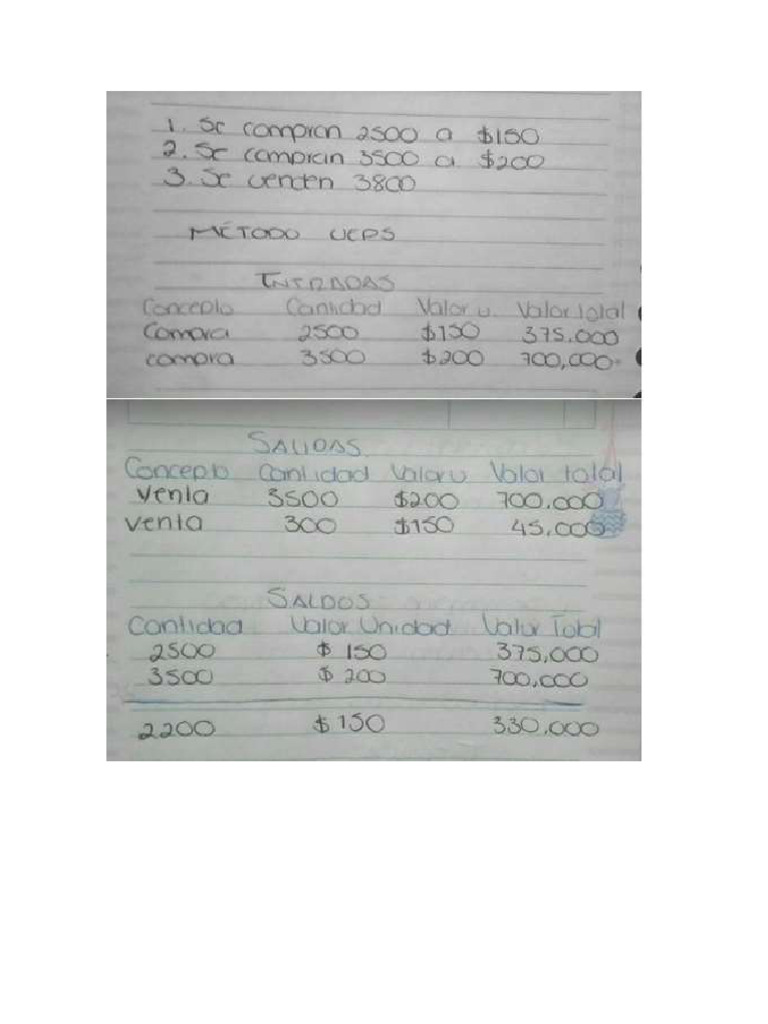 1. Se compran 2500 a $150
2. Se compran 3500 a $200
3. Se venden 3800
MÉTODO UEPS
ENTRADAS
Concepto Cantidad Valor u. Valor total
Compra 2500 $150 375.000
compra 3500 $200 700,000
SALIDAS
Concepto Cantidad Valor u Valor total
Venta 3500 $200 700.000
Venta 300 $150 45.000
SALDOS
Cantidad Valor Unidad Valor Total
2500 $ 150 375,000
3500 $ 200 700,000
2200 $ 150 330.000